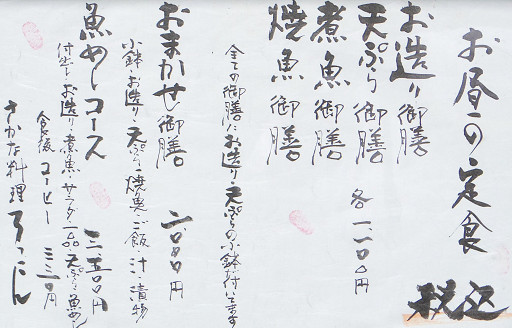 お昼の定食
税込
お造り御膳
天ぷら御膳
煮魚御膳
焼魚御膳
各一、一〇〇円
全ての御膳にお造り・天ぷらの小鉢付いてます
おまかせ御膳 二、〇〇〇円
小鉢・お造り・天ぷら・焼魚・ご飯・汁・漬物
魚めしコース 三、五〇〇円
付出し・お造り・煮魚・サラダ・一品・天ぷら・魚めし
食後コーヒー 三三〇円
さかな料理